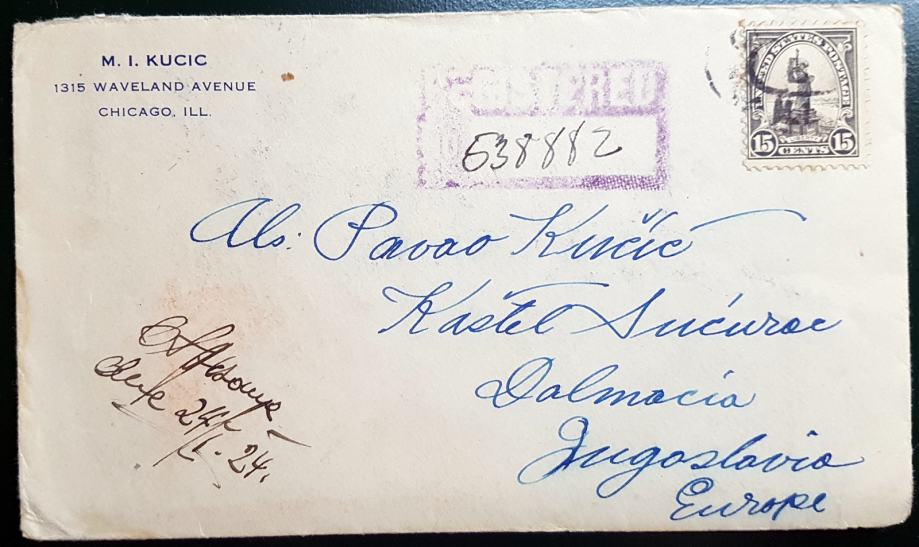 M. I. KUCIC
1315 WAVELAND AVENUE
CHICAGO, ILL.
REGISTERED
638882
UNITED STATES POSTAGE
15 CENTS 15
Pavao Kučić
Kaštel Sućurac
Dalmacia
Jugoslavia
Europe
24/I. 24.